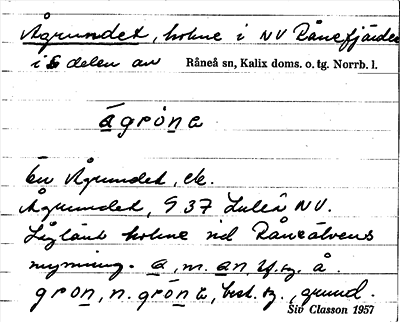 Ågrundet, holme i NV Rånefjärden
i S delen av Råneå sn, Kalix doms. o. tg. Norrb. l.
ágrònɛ
En Ågrundet, ek.
Ågrundet, 9 37 Luleå NV.
Låglänt holme vid Råneälvens
mynning. a, m. an bf. sg. å.
gron, n. grònɛ, best. sg., grund.
Siv Classon 1957